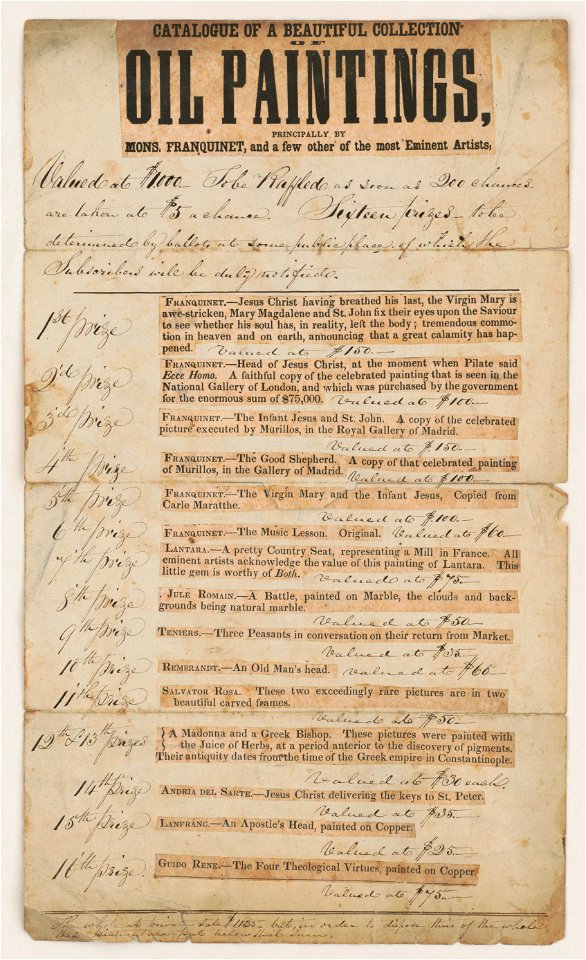 CATALOGUE OF A BEAUTIFUL COLLECTION
OF
OIL PAINTINGS,
PRINCIPALLY BY
MONS. FRANQUINET, and a few other of the most Eminent Artists,
Valued at $1000— To be Raffled as soon as 200 chances
are taken at $5 a chance. Sixteen prizes— to be
determined by ballots at some public place, of which the
Subscribers will be duly notified.
1st prize
FRANQUINET.—Jesus Christ having breathed his last, the Virgin Mary is
awe-stricken, Mary Magdalene and St. John fix their eyes upon the Saviour
to see whether his soul has, in reality, left the body; tremendous commo-
tion in heaven and on earth, announcing that a great calamity has hap-
pened. Valued at $150—
2d prize
FRANQUINET.—Head of Jesus Christ, at the moment when Pilate said
Ecce Homo. A faithful copy of the celebrated painting that is seen in the
National Gallery of London, and which was purchased by the government
for the enormous sum of $75,000. Valued at $100—
3d prize
FRANQUINET.—The Infant Jesus and St. John. A copy of the celebrated
picture executed by Murillos, in the Royal Gallery of Madrid.
Valued at $150—
4th prize
FRANQUINET.—The Good Shepherd. A copy of that celebrated painting
of Murillos, in the Gallery of Madrid. Valued at $100—
5th prize
FRANQUINET.—The Virgin Mary and the Infant Jesus, Copied from
Carle Maratthe.
Valued at $100—
6th prize
FRANQUINET.—The Music Lesson. Original. Valued at $60—
7th prize
LANTARA.—A pretty Country Seat, representing a Mill in France. All
eminent artists acknowledge the value of this painting of Lantara. This
little gem is worthy of Both. Valued at $75—
8th prize
JULE ROMAIN.—A Battle, painted on Marble, the clouds and back-
grounds being natural marble.
Valued at $50—
9th prize
TENIERS.—Three Peasants in conversation on their return from Market.
Valued at $35—
10th prize
REMBRANDT.—An Old Man's head. Valued at $60—
11th prize
SALVATOR ROSA. These two exceedingly rare pictures are in two
beautiful carved frames.
Valued at $50—
12th & 13th prizes
A Madonna and a Greek Bishop. These pictures were painted with
the Juice of Herbs, at a period anterior to the discovery of pigments.
Their antiquity dates from the time of the Greek empire in Constantinople.
Valued at $30 each.
14th prize
ANDRIA DEL SARTE.—Jesus Christ delivering the keys to St. Peter.
Valued at $35—
15th prize
LANFRANC.—An Apostle's Head, painted on Copper.
Valued at $25—
16th prize.
GUIDO RENE.—The Four Theological Virtues, painted on Copper.
Valued at $75—
The whole at private sale $1125— but, in order to dispose thus of the whole